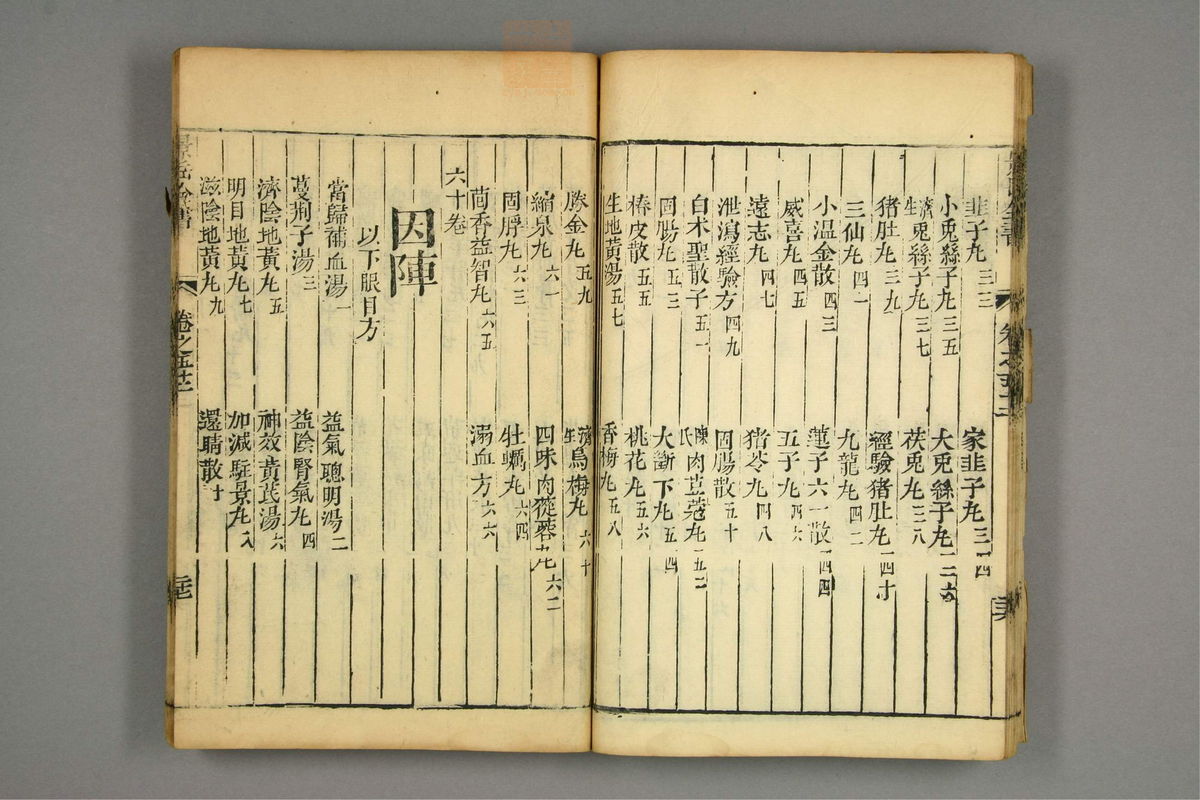 韭子丸 三三
家韭子丸 三四
小兎絲子丸 三五
大兎絲子丸 三六
濟生兎絲子丸 三七
茯兎丸 三八
猪肚丸 三九
經驗猪肚丸 四十
三仙丸 四一
九龍丸 四二
小温金散 四三
蓮子六一散 四四
威喜丸 四五
五子丸 四六
遠志丸 四七
猪苓丸 四八
泄瀉經驗方 四九
固腸散 五十
白术聖散子 五一
陳氏肉荳蔻丸 五二
固腸丸 五三
大斷下丸 五四
椿皮散 五五
桃花丸 五六
生地黃湯 五七
香梅丸 五八
勝金丸 五九
濟生烏梅丸 六十
縮泉丸 六一
四味肉蓯蓉丸 六二
固脬丸 六三
牡蠣丸 六四
茴香益智丸 六五
溺血方 六六
六十卷
因陣
以下眼目方
當歸補血湯 一
益氣聰明湯 二
蔓荆子湯 三
益陰腎氣丸 四
濟陰地黃丸 五
神效黃芪湯 六
明目地黃丸 七
加減駐景丸 八
滋陰地黃丸 九
還睛散 十
景岳全書
卷之五十三